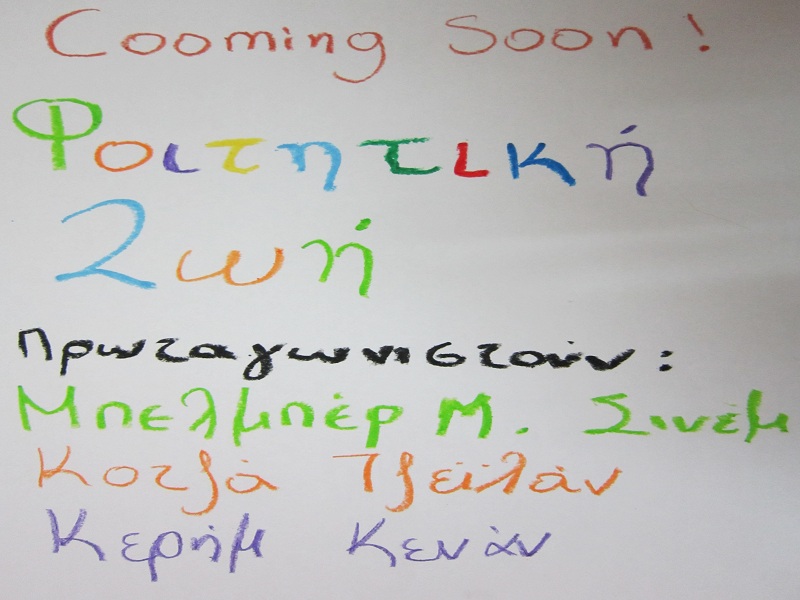 Cooming Soon!
Φοιτητική
Ζωή
Πρωταγωνιστούν:
Μπελμπέρ Μ. Σινέμ
Κοτζά Τζεϊλάν
Κερήμ Κενάν